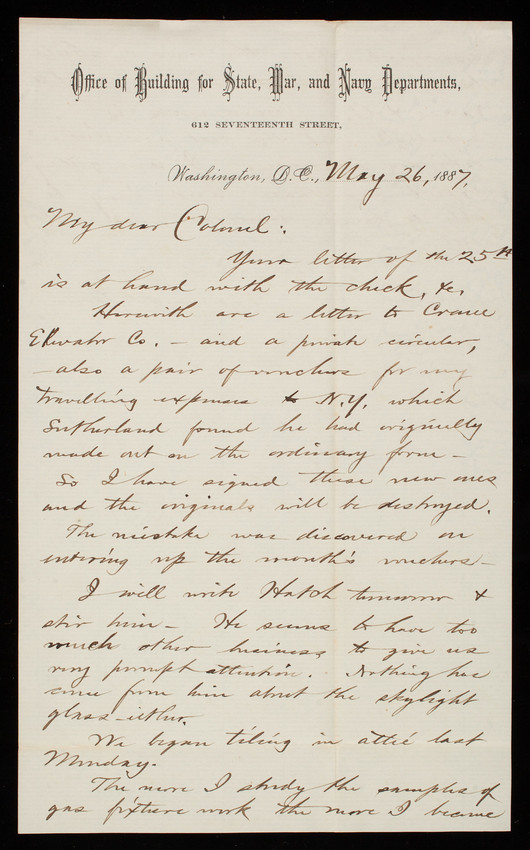 Office of Building for State, War, and Navy Departments,
612 SEVENTEENTH STREET,
Washington, D.C., May 26, 1887.
My dear Colonel:
Your letter of the 25th
is at hand with the check, &c.
Herewith are a letter to Crane
Elevator Co. – and a private circular,
– also a pair of vouchers for my
travelling expenses to N.Y. which
Sutherland found he had originally
made out on the ordinary form –
So I have signed these new ones
and the originals will be destroyed.
The mistake was discovered on
entering up the month's vouchers –
I will write Hatch tomorrow &
stir him – He seems to have too
much other business to give us
very prompt attention. Nothing has
come from him about the skylight
glass either.
We began tiling in attic last
Monday.
The more I study the samples of
gas fixture work the more I become